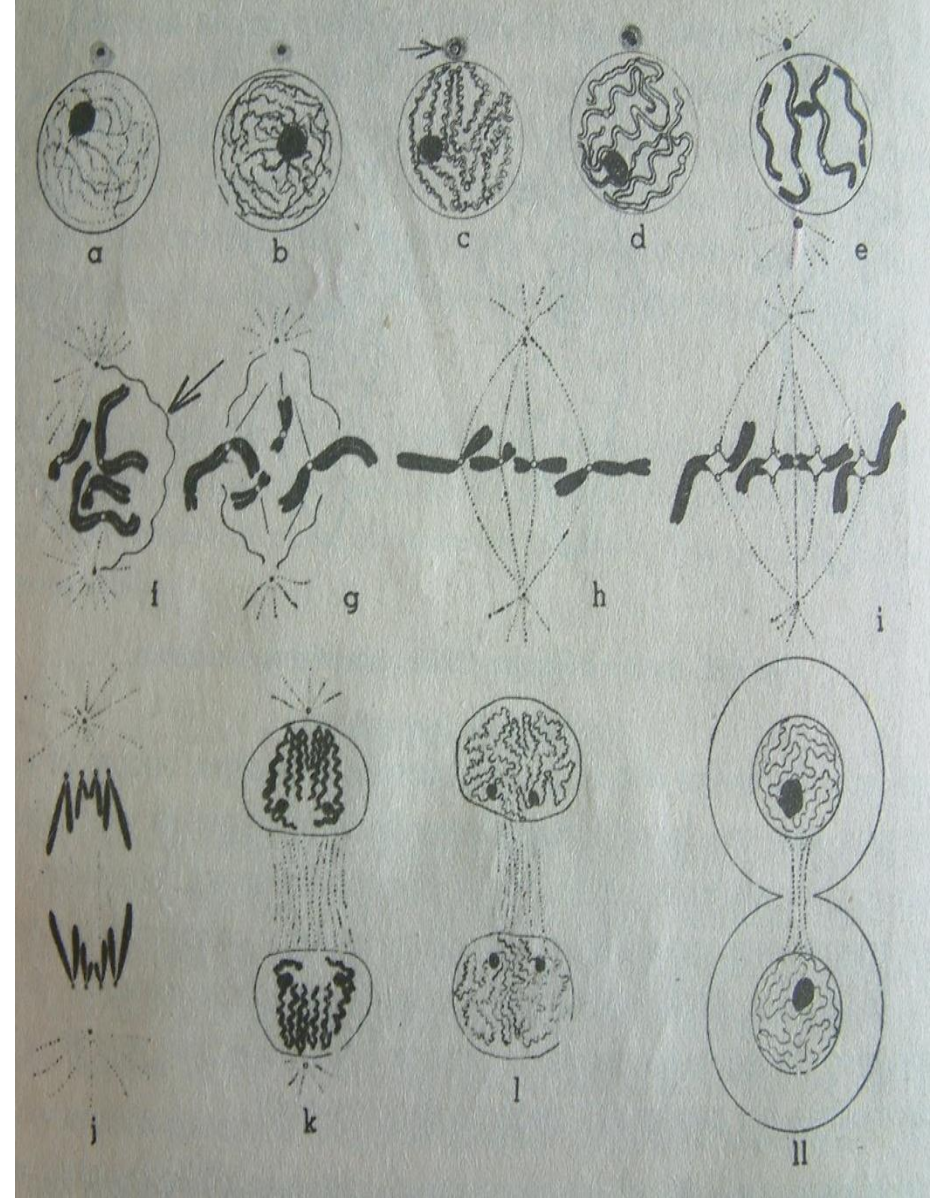 a b c d e
f g h i
j k l ll